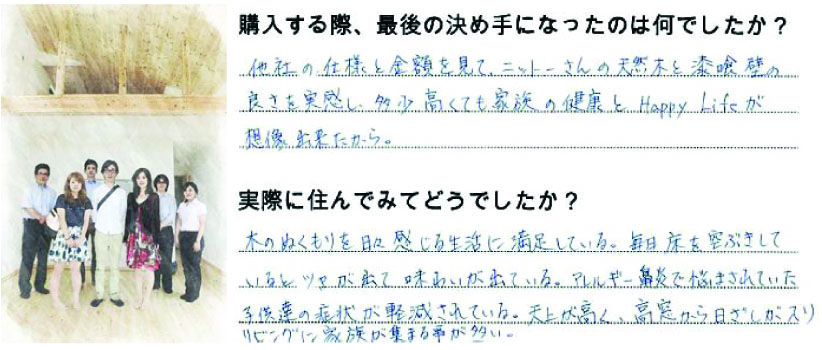 購入する際、最後の決め手になったのは何でしたか？
他社の仕様と金額を見て、ニットーさんの天然木と漆喰壁の
良さを実感し、多少高くても家族の健康と Happy Lifeが
想像出来たから。
実際に住んでみてどうでしたか？
木のぬくもりを日々感じる生活に満足している。毎日床を空ぶきして
いるとツヤが出て味わいが出ている。アレルギー鼻炎で悩まされていた
子供達の症状が軽減されている。天上が高く、高窓から日ざしが入り
リビングに家族が集まる事が多い。